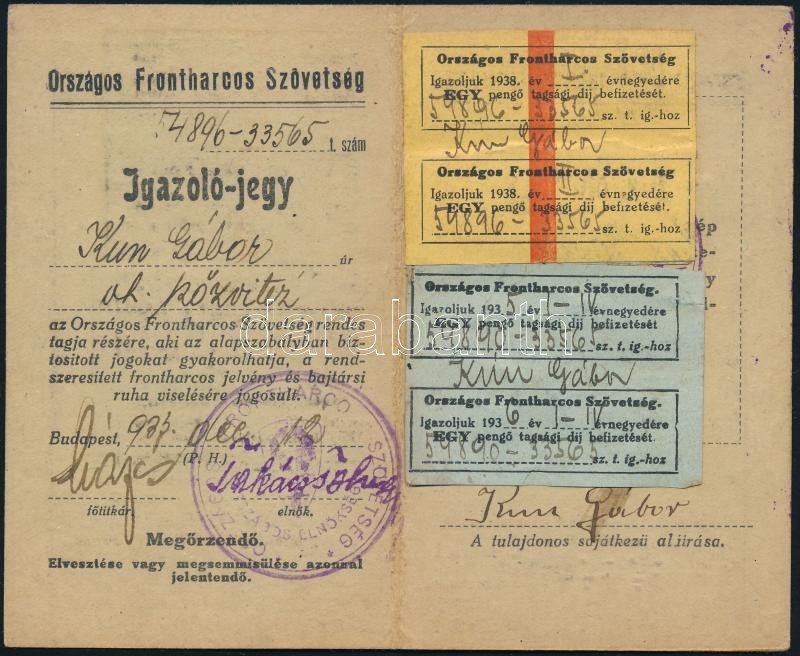 Országos Frontharcos Szövetség
54896-33565 t. szám
Igazoló-jegy
Kun Gábor úr
oh. közvitéz
az Országos Frontharcos Szövetség rendes
tagja részére, aki az alapszabályban biz-
tositott jogokat gyakorolhatja, a rend-
szeresitett frontharcos jelvény és bajtársi
ruha viselésére jogosult.
Budapest, 935. dec. 12
(P. H.)
főtitkár. elnök.
Megőrzendő.
Elvesztése vagy megsemmisülése azonnal
jelentendő.
Országos Frontharcos Szövetség
Igazoljuk 1938. év I. évnegyedére
EGY pengő tagsági dij befizetését.
59896-33565 sz. t. ig.-hoz
Kun Gábor
Országos Frontharcos Szövetség
Igazoljuk 1938. év II. évnegyedére
EGY pengő tagsági dij befizetését.
59896-33565 sz. t. ig.-hoz
Országos Frontharcos Szövetség.
Igazoljuk 1935 év I-IV évnegyedére
EGY pengő tagsági dij befizetését
59890-33565 sz. t. ig.-hoz
Kun Gábor
Országos Frontharcos Szövetség.
Igazoljuk 1936 év I-IV évnegyedére
EGY pengő tagsági dij befizetését.
59890-33565 sz. t. ig.-hoz
Kun Gábor
A tulajdonos sajátkezü aláirása.
darabanth